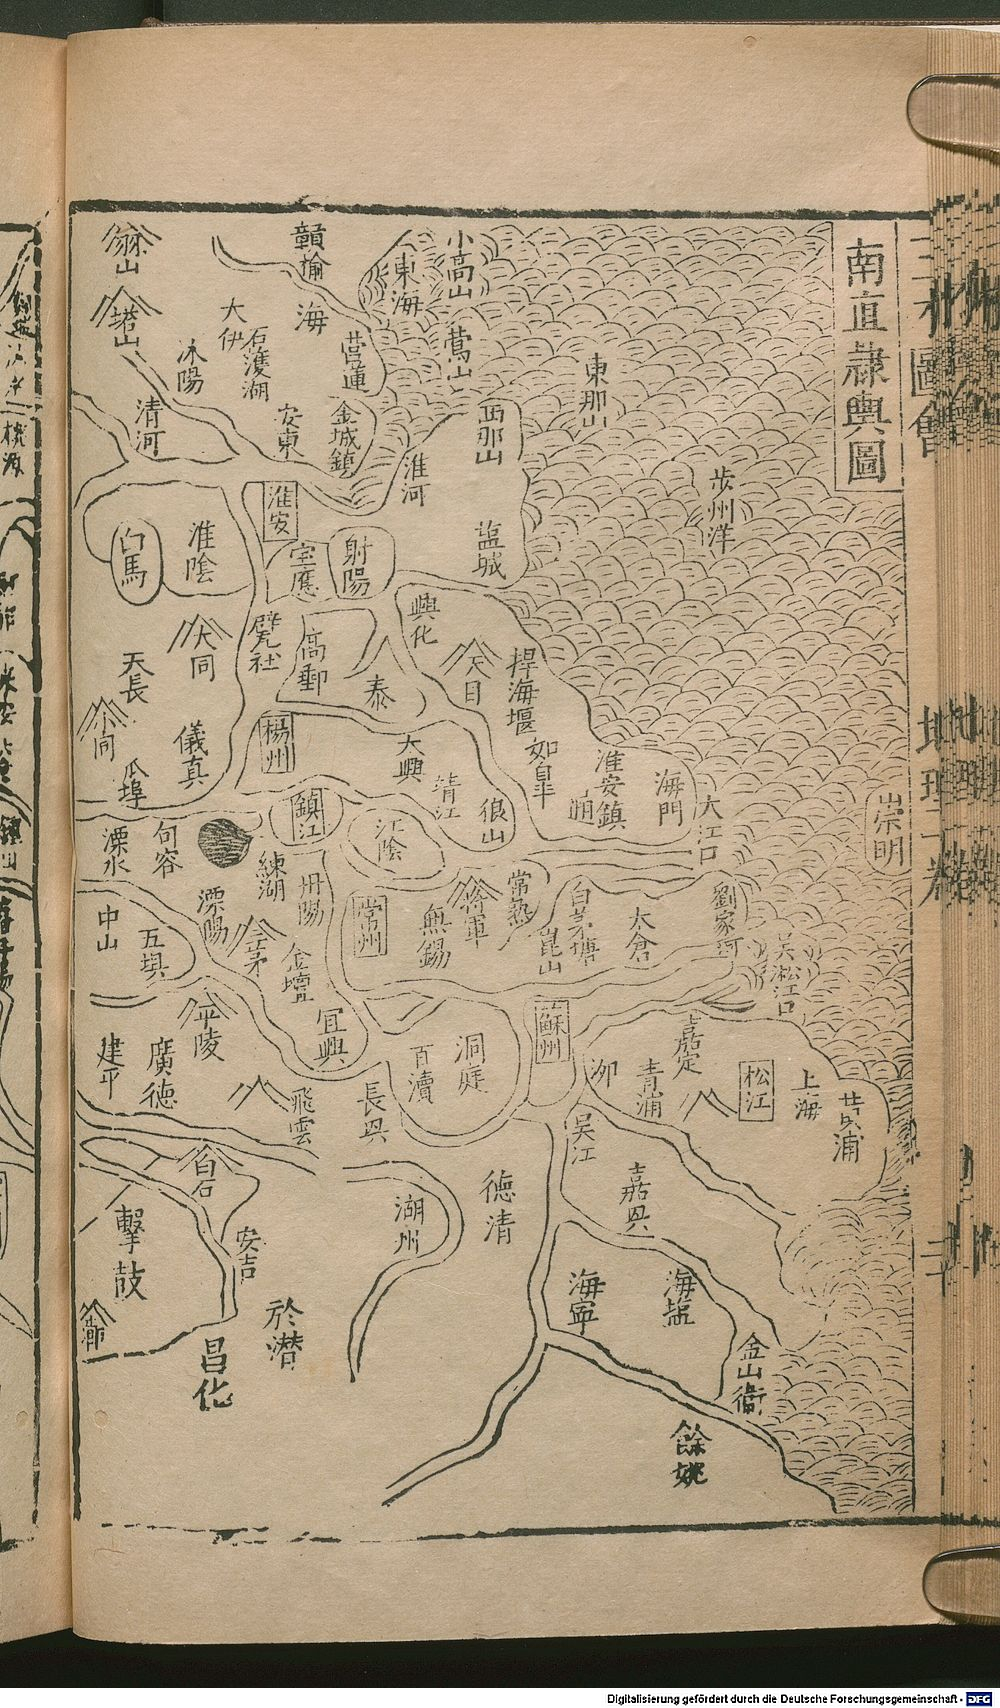 南直隸輿圖
崇明
步州洋
東那山
小高山
鶯山
西那山
塩城
東海
淮河
贛榆
海
莒蓮
金城鎮
大伊
石濩湖
安東
沭陽
清河
塔山
淮安
淮陰
白馬
宝應
射陽
興化
天目
捍海堰
如皐
淮安鎮
海門
大江口
甓社
高郵
泰
大同
天長
小同
儀真
瓜埠
楊州
大興
靖江
狼山
鎮江
江陰
句容
溧水
練湖
丹陽
常州
無錫
將軍
常熟
白茅塘
崑山
太倉
劉家河
吴淞江口
中山
五堰
溧陽
三茅
金壇
宜興
平陵
建平
廣德
飛雲
長興
百瀆
洞庭
蘇州
泖
青浦
嘉定
松江
上海
黄浦
吴江
白石
擊鼓
安吉
湖州
德清
嘉興
海寧
海盐
金山衛
於潜
昌化
餘姚
三才圖會
地理一卷
Digitalisierung gefördert durch die Deutsche Forschungsgemeinschaft - DFG